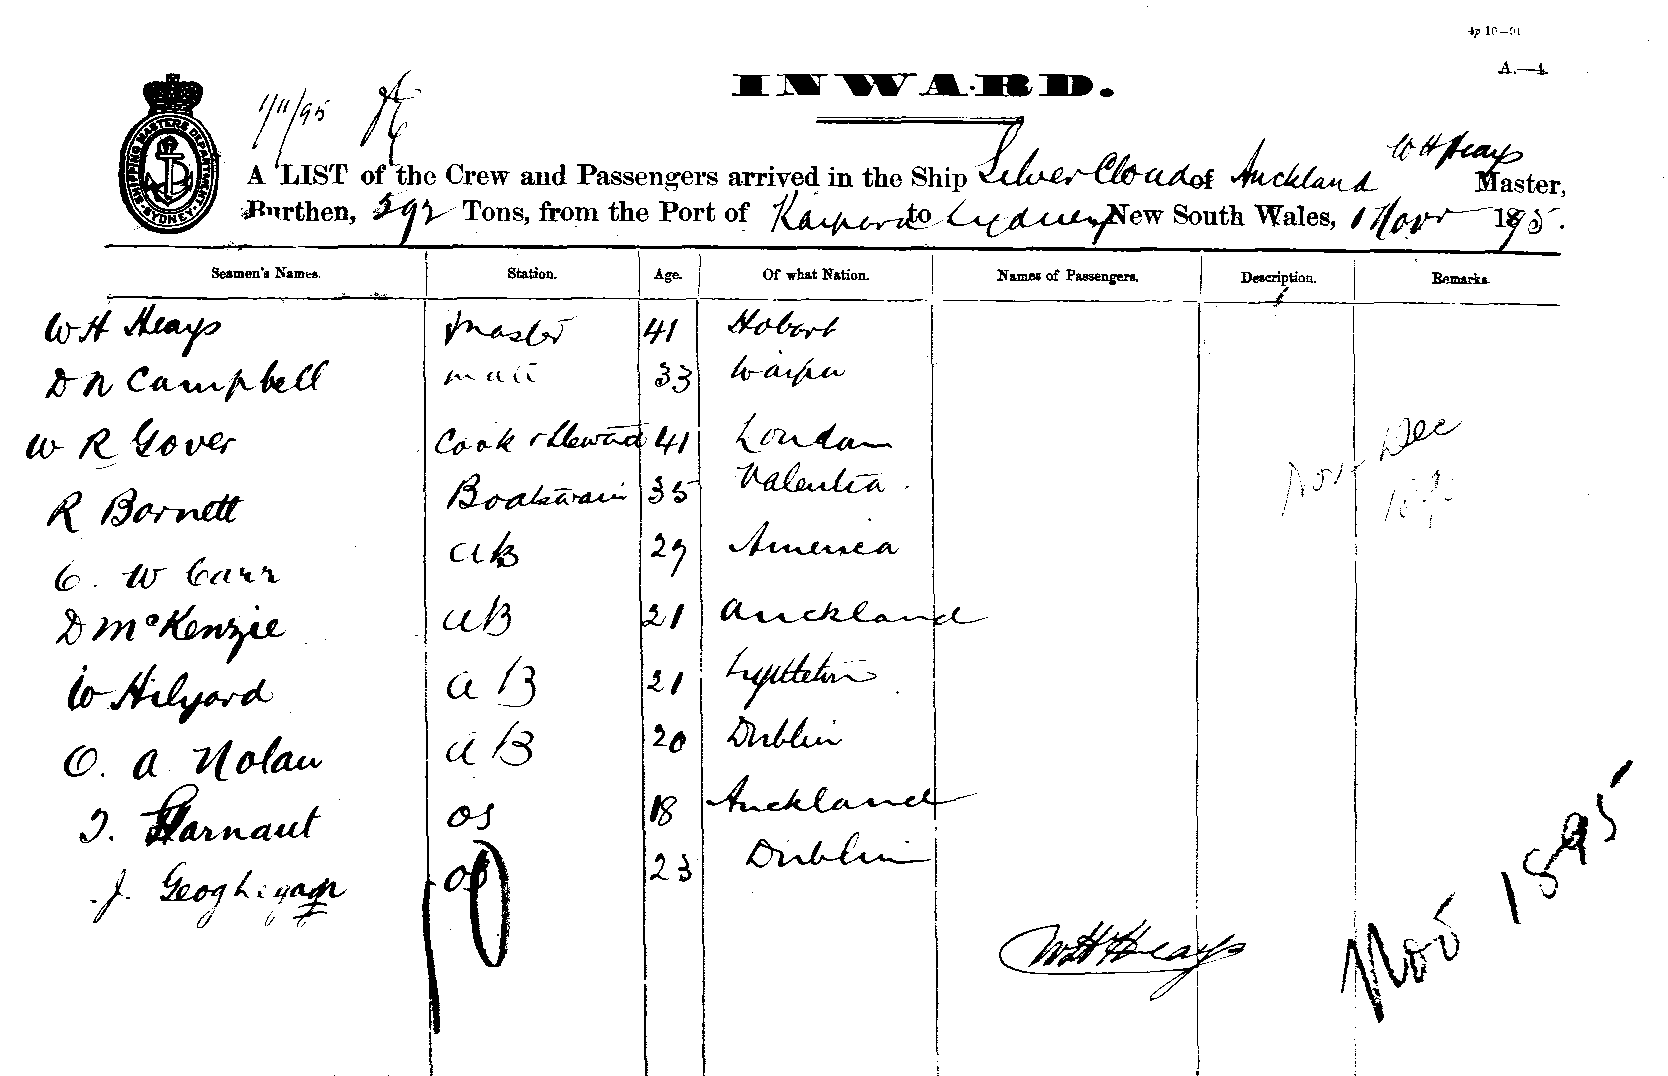 4p 10—91
A.—4
INWARD.
1/11/95
SHIPPING MASTERS DEPARTMENT SYDNEY
W H Heays
A LIST of the Crew and Passengers arrived in the Ship Silver Cloud of Auckland Master,
Burthen, 292 Tons, from the Port of Kaipara to Sydney New South Wales, 1 Novr 1895.
Seamen's Names. Station. Age. Of what Nation. Names of Passengers. Description. Remarks.
W H Heays Master 41 Hobart
D N Campbell mate 33 Waipu
W R Gover Cook & Steward 41 London
R Barnett Boatswain 35 Valentia
C. W Carr AB 29 America
D McKenzie AB 21 Auckland
W Hilyard AB 21 Lyttleton
O. A Nolan AB 20 Dublin
OS 18 Auckland
J. Geoghegan OS 23 Dublin
Nov - Dec
189
W H Heays
Nov 1895